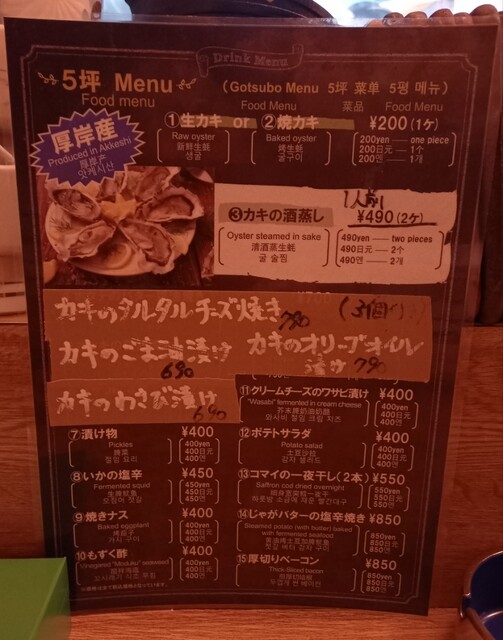 Drink Menu
5坪 Menu
Food menu
(Gotsubo Menu 5坪 菜单 5평 메뉴)
Food Menu 菜品 Food Menu
厚岸産
Produced in Akkeshi
厚岸产
앗케시산
①生カキ or ②焼カキ ¥200(1ケ)
Raw oyster
新鲜生蚝
생굴
Baked oyster
烤生蚝
굴구이
200yen — one piece
200日元 — 1个
200엔 — 1개
1人前
③カキの酒蒸し ¥490(2ケ)
Oyster steamed in sake
清酒蒸生蚝
굴 술찜
490yen — two pieces
490日元 — 2个
490엔 — 2개
カキのタルタルチーズ焼き 790
カキのごま油漬け 690
カキのオリーブオイル漬け 790
カキのわさび漬け 690
⑦漬け物 ¥400
Pickles
400yen
400日元
400엔
⑧いかの塩辛 ¥450
Fermented squid
450yen
450日元
450엔
⑨焼きナス ¥400
Baked eggplant
烤茄子
가지 구이
400yen
400日元
400엔
⑩もずく酢 ¥400
Vinegared "Mozuku" seaweed
400yen
400日元
400엔
⑪クリームチーズのワサビ漬け ¥400
"Wasabi" fermented in cream cheese
400yen
400日元
400엔
⑫ポテトサラダ ¥400
Potato salad
土豆沙拉
감자 샐러드
400yen
400日元
400엔
⑬コマイの一夜干し(2本) ¥550
Saffron cod dried overnight
550yen
550日元
550엔
⑭じゃがバターの塩辛焼き ¥850
Steamed potato (with butter) baked
with fermented seafood
850yen
850日元
850엔
⑮厚切りベーコン ¥850
Thick-Sliced bacon
850yen
850日元
850엔